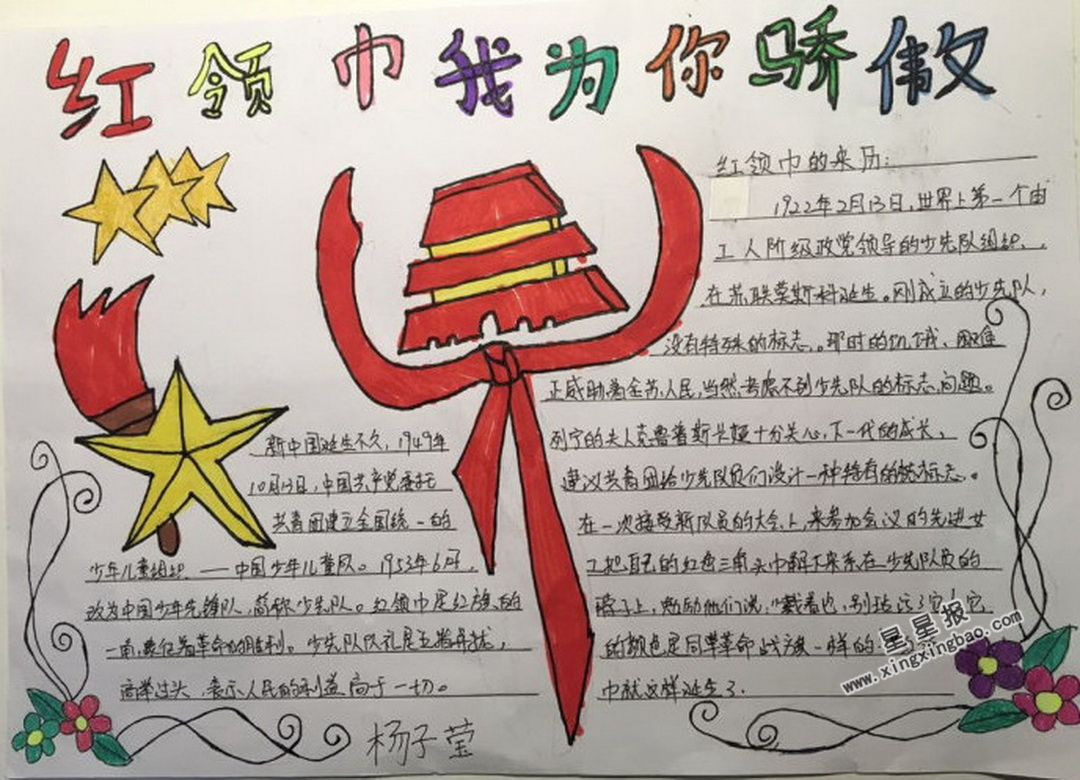 红领巾我为你骄傲
红领巾的来历:
1922年2月13日,世界上第一个由
工人阶级政党领导的少先队组织、
在苏联莫斯科诞生。刚成立的少先队,
没有特殊的标志。那时的饥饿、困难
正威胁着全苏人民,当然考虑不到少先队的标志问题。
列宁的夫人克鲁普斯卡娅十分关心,下一代的成长,
建议共青团给少先队员们设计一种特有的标志。
在一次接受新队员的大会上,来参加会议的先进女
工把自己的红色三角头巾解下来系在少先队员的
脖子上,勉励他们说:"戴着它,别玷污了它,它
的颜色是同革命战旗一样的
巾就这样诞生了.
新中国诞生不久,1949年
10月13日,中国共产党委托
共青团建立全国统一的
少年儿童组织——中国少年儿童队。1953年6月,
改为中国少年先锋队,简称少先队。红领巾是红旗的
一角,象征着革命的胜利。少先队队礼是五指并拢,
高举过头,表示人民的利益高于一切。
杨子莹
星星报
www.xingxingbao.com